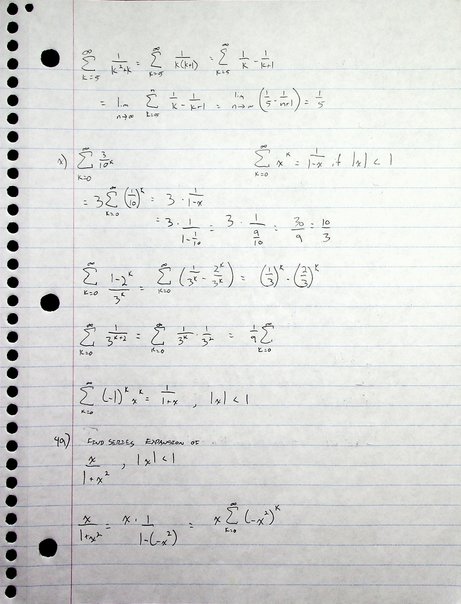 ∑_{k=5}^{∞} 1/(k²+k) = ∑_{k=5}^{∞} 1/(k(k+1)) = ∑_{k=5}^{∞} 1/k - 1/(k+1)
= lim_{n→∞} ∑_{k=5}^{n} 1/k - 1/(k+1) = lim_{n→∞} (1/5 - 1/(n+1)) = 1/5
∑_{k=0}^{∞} 3/10^k
∑_{k=0}^{∞} x^k = 1/(1-x) if |x| < 1
= 3 ∑_{k=0}^{∞} (1/10)^k = 3 · 1/(1-x)
= 3 · 1/(1-1/10) = 3 · 1/(9/10) = 30/9 = 10/3
∑_{k=0}^{∞} (1-2^k)/3^k = ∑_{k=0}^{∞} (1/3^k - 2^k/3^k) = (1/3)^k - (2/3)^k
∑_{k=0}^{∞} 1/3^{k+2} = ∑_{k=0}^{∞} 1/3^k · 1/3² = 1/9 ∑_{k=0}^{∞}
∑_{k=0}^{∞} (-1)^k x^k = 1/(1+x) , |x| < 1
49) FIND SERIES EXPANSION OF
x/(1+x²) , |x| < 1
x/(1+x²) = x · 1/(1-(-x²)) = x ∑_{k=0}^{∞} (-x²)^k